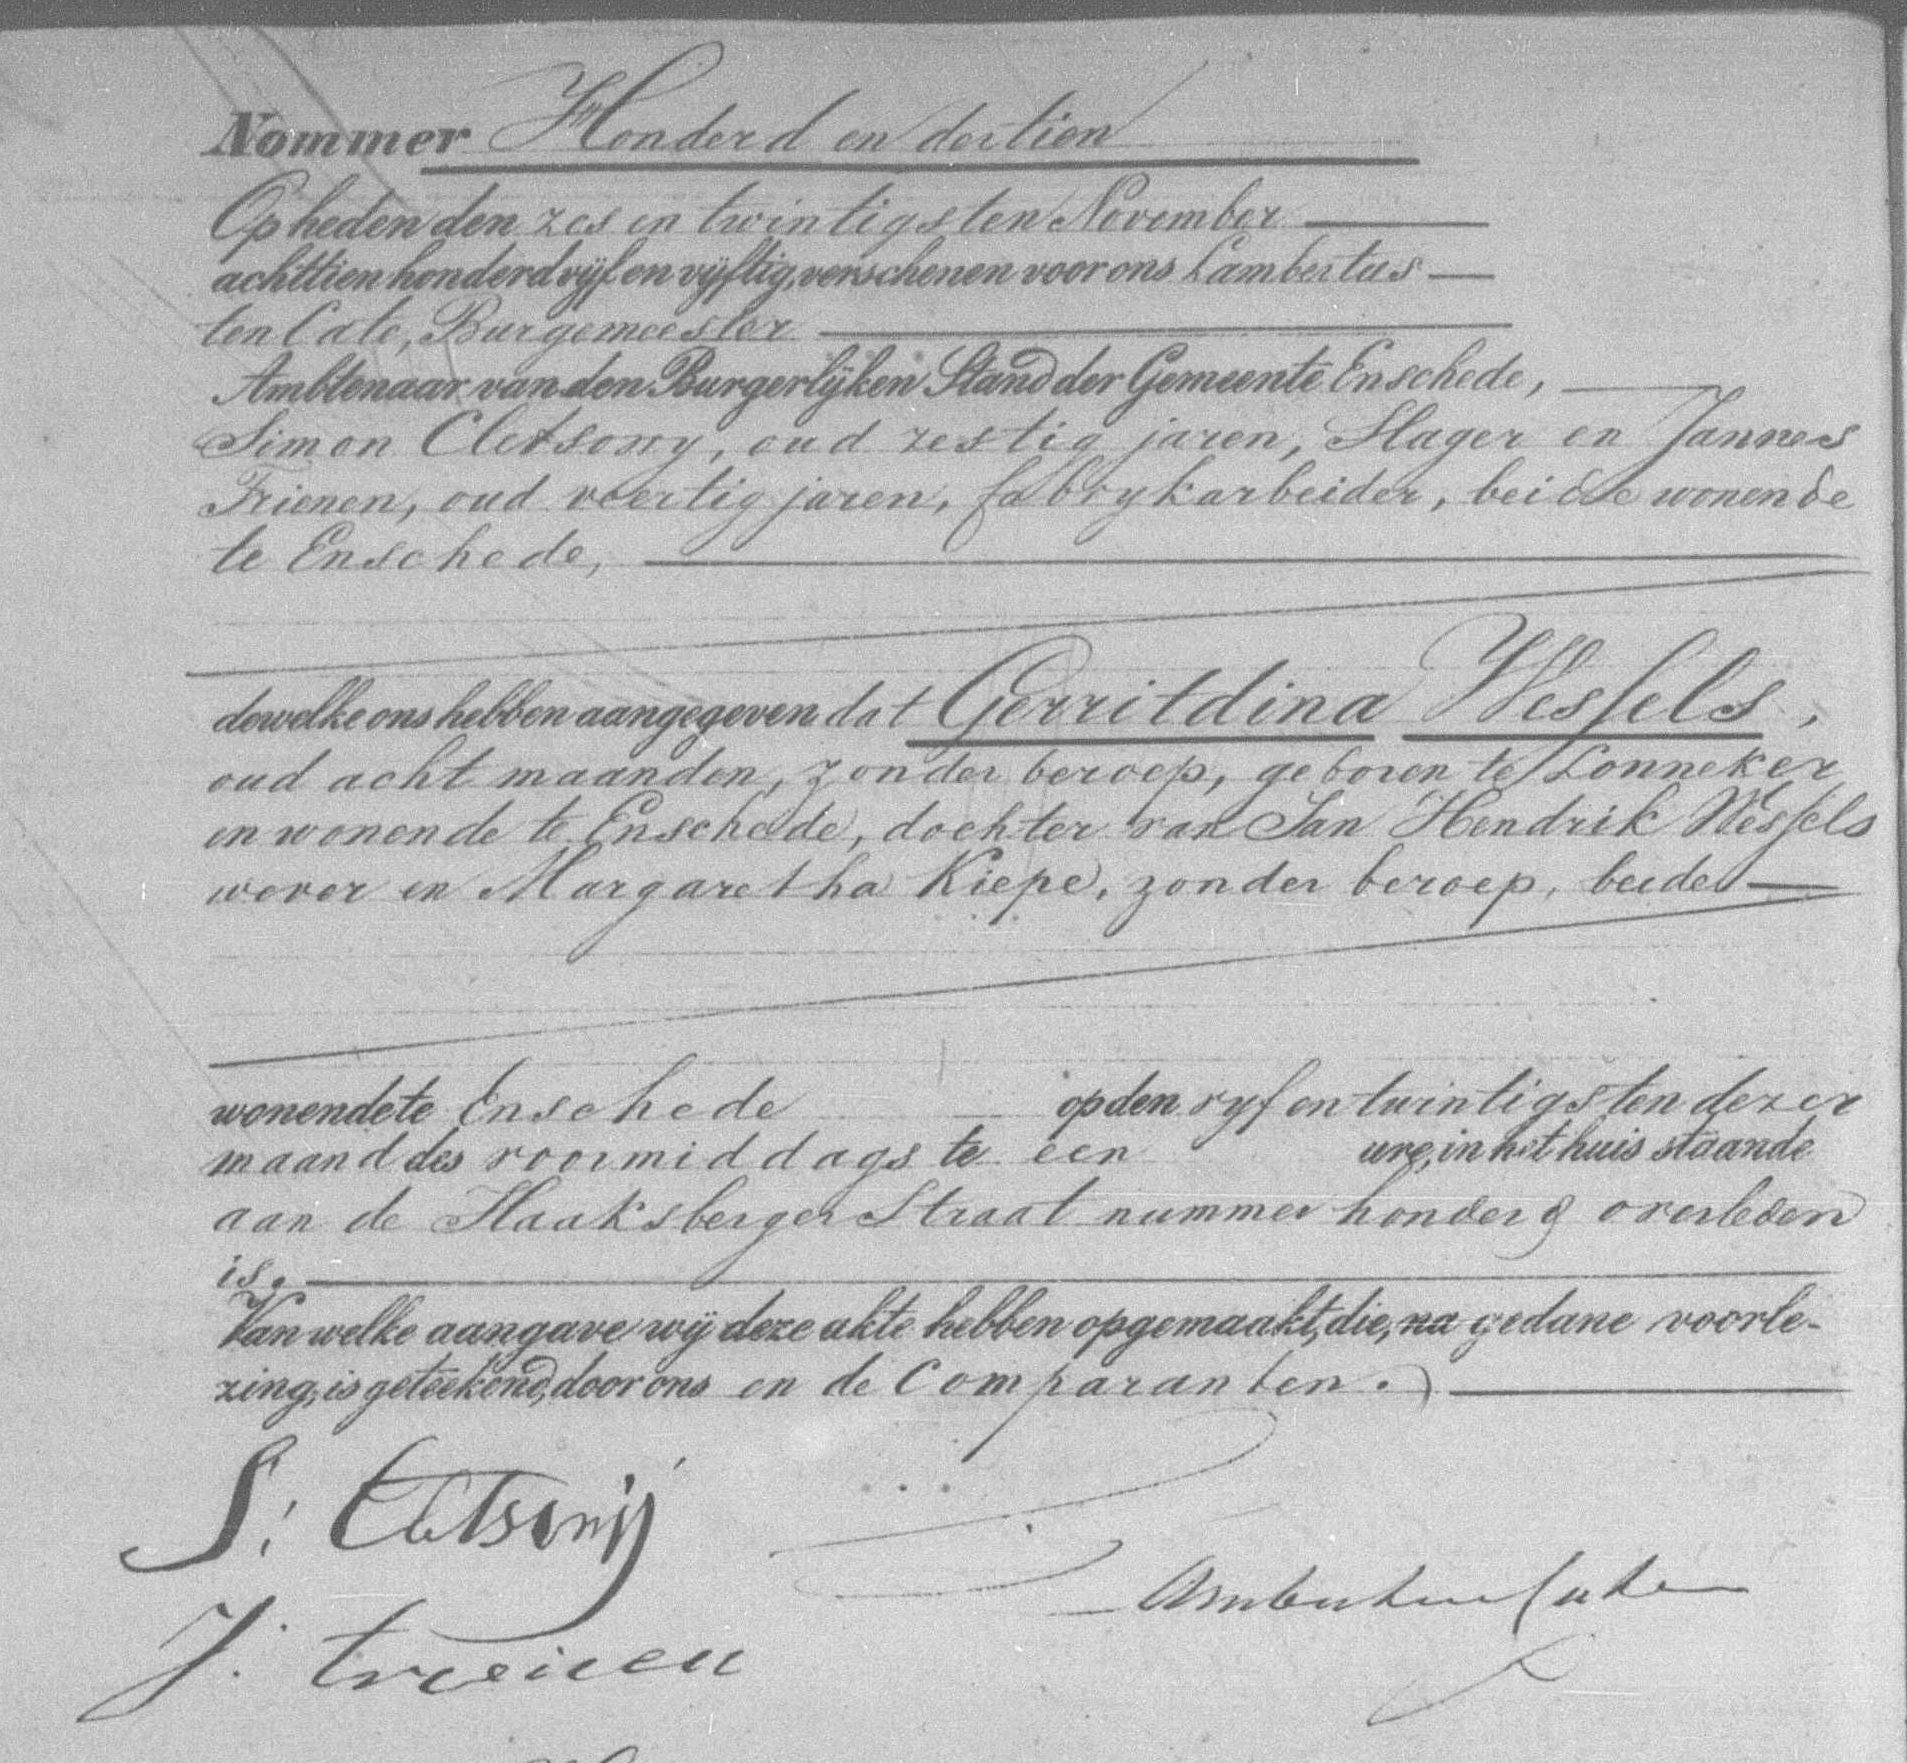 Nommer Honderd en dertien
Op heden den zes en twintigsten November
achttien honderd vijf en vijftig, verschenen voor ons Lambertus
ten Cate, Burgemeester
Ambtenaar van den Burgerlijken Stand der Gemeente Enschede,
Simon Cletsony, oud zestig jaren, Slager en Jannes
Frienen, oud veertig jaren, fabrykarbeider, beide wonende
te Enschede,
dewelke ons hebben aangegeven dat Gerritdina Wessels,
oud acht maanden, zonder beroep, geboren te Lonneker
en wonende te Enschede, dochter van Jan Hendrik Wessels
wever en Margaretha Kiepe, zonder beroep, beide
wonende te Enschede op den vyf en twintigsten dezer
maand des voormiddags te een ure, in het huis staande
aan de Haaksberger Straat nummer honderd overleden
is.
Van welke aangave wij deze akte hebben opgemaakt, die, na gedane voorle-
zing, is geteekend, door ons en de Comparanten.
S: Cletsonij
J. Frienen